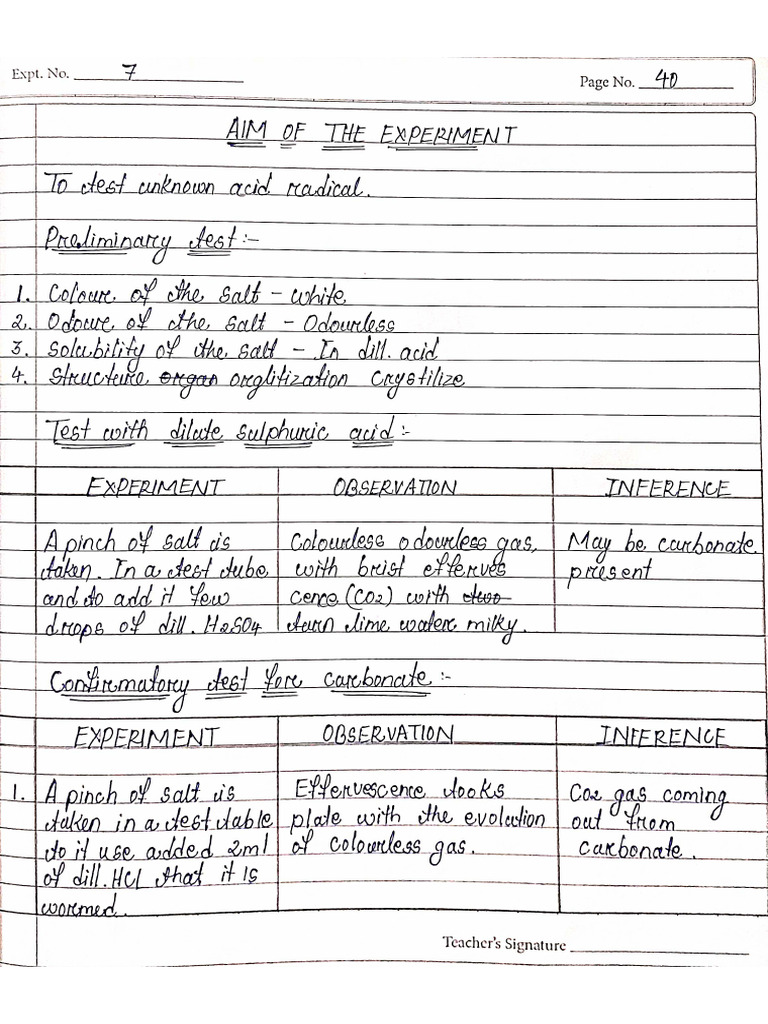 Expt. No. 7
Page No. 40
AIM OF THE EXPERIMENT
To test unknown acid radical.
Preliminary test :-
1. Coloure of the salt - white
2. Odoure of the salt - Odourless
3. Solubility of the salt - In dill. acid
4. Structure organ orglitization Crystilize
Test with dilute sulphuric acid :-
EXPERIMENT OBSERVATION INFERENCE
A pinch of salt is Colourless odourless gas, May be carbonate
taken. In a test tube with brist efferves present
and to add it few cence (CO2) with two
drops of dill. H2SO4 turn lime water milky.
Confirmatory test for carbonate :-
EXPERIMENT OBSERVATION INFERENCE
1. A pinch of salt is Effervescence tooks CO2 gas coming
taken in a test table plate with the evolution out from
to it use added 2ml of colourless gas. carbonate.
of dill. HCl that it is
wormed.
Teacher's Signature